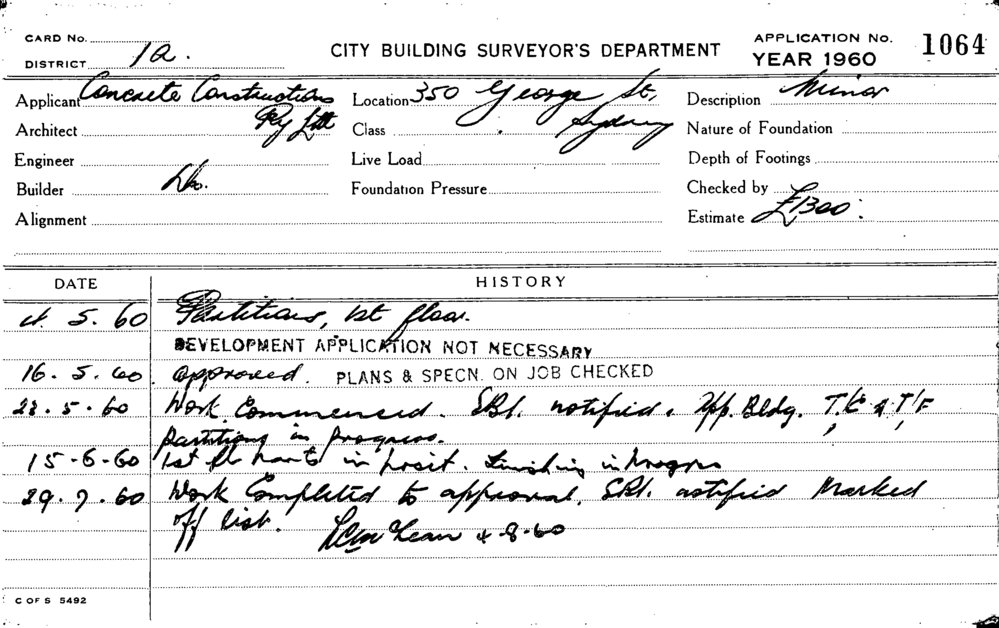 CARD No.
DISTRICT 1a.
CITY BUILDING SURVEYOR'S DEPARTMENT
APPLICATION No. 1064
YEAR 1960
Applicant Concrete Constructions
Pty Ltd
Location 350 George St,
Sydney
Description Minor
Architect
Class
Nature of Foundation
Engineer
Live Load
Depth of Footings
Builder Do.
Foundation Pressure
Checked by
Alignment
Estimate £1300:
DATE HISTORY
4. 5. 60 Partitions, 1st floor.
DEVELOPMENT APPLICATION NOT NECESSARY
16. 5. 60. approved. PLANS & SPECN. ON JOB CHECKED
23. 5. 60 Work Commenced. notified. Bldg.
partitions in progress.
15-6-60 1st fl in posit. finishing in progress
29. 7. 60 Work Completed to approval. notified Marked
off list. 4-8-60
C OF S 5492